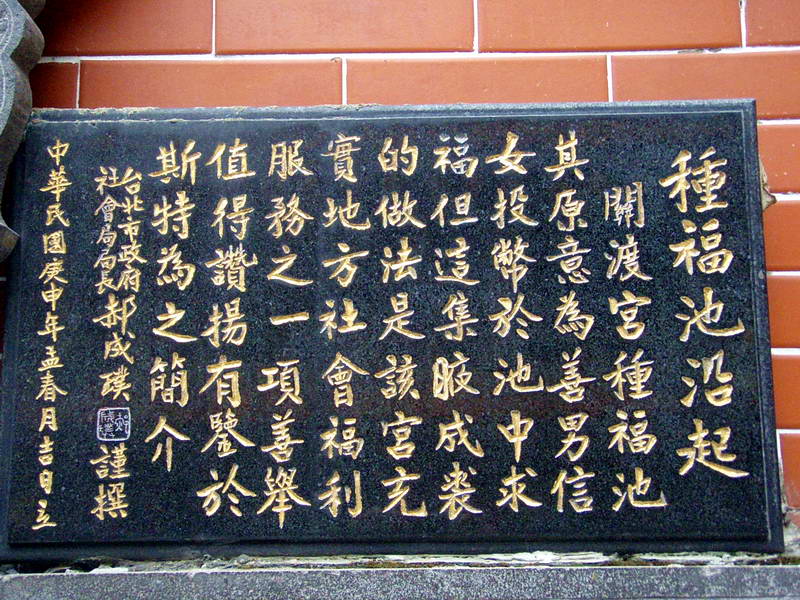 種福池沿起
關渡宮種福池
其原意為善男信
女投幣於池中求
福但這集腋成裘
的做法是該宮充
實地方社會福利
服務之一項善舉
值得讚揚有鑒於
斯特為之簡介
台北市政府
社會局局長郝成璞謹撰
中華民國庚申年孟春月吉日立